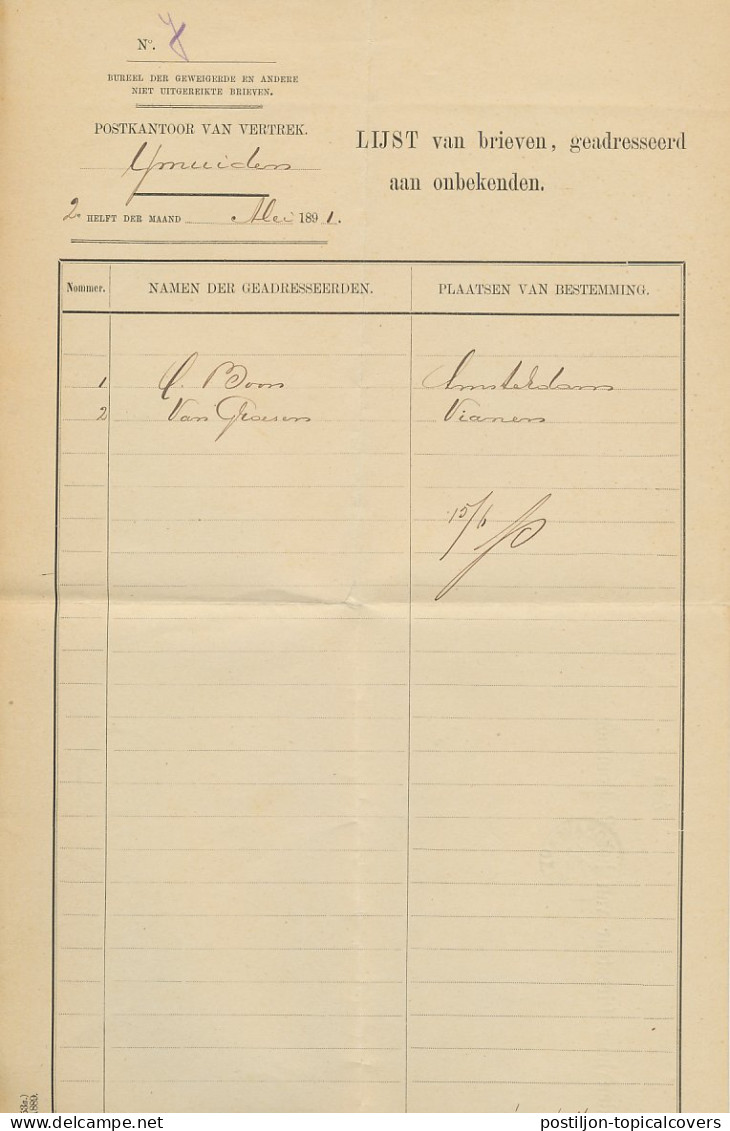 N°.
BUREEL DER GEWEIGERDE EN ANDERE
NIET UITGEREIKTE BRIEVEN.
POSTKANTOOR VAN VERTREK.
Ymuiden
2e HELFT DER MAAND Mei 1891.
LIJST van brieven, geadresseerd
aan onbekenden.
Nommer. NAMEN DER GEADRESSEERDEN. PLAATSEN VAN BESTEMMING.
1 C. Boon Amsterdam
2 Van Vianen
15/6
postiljon-topicalcovers